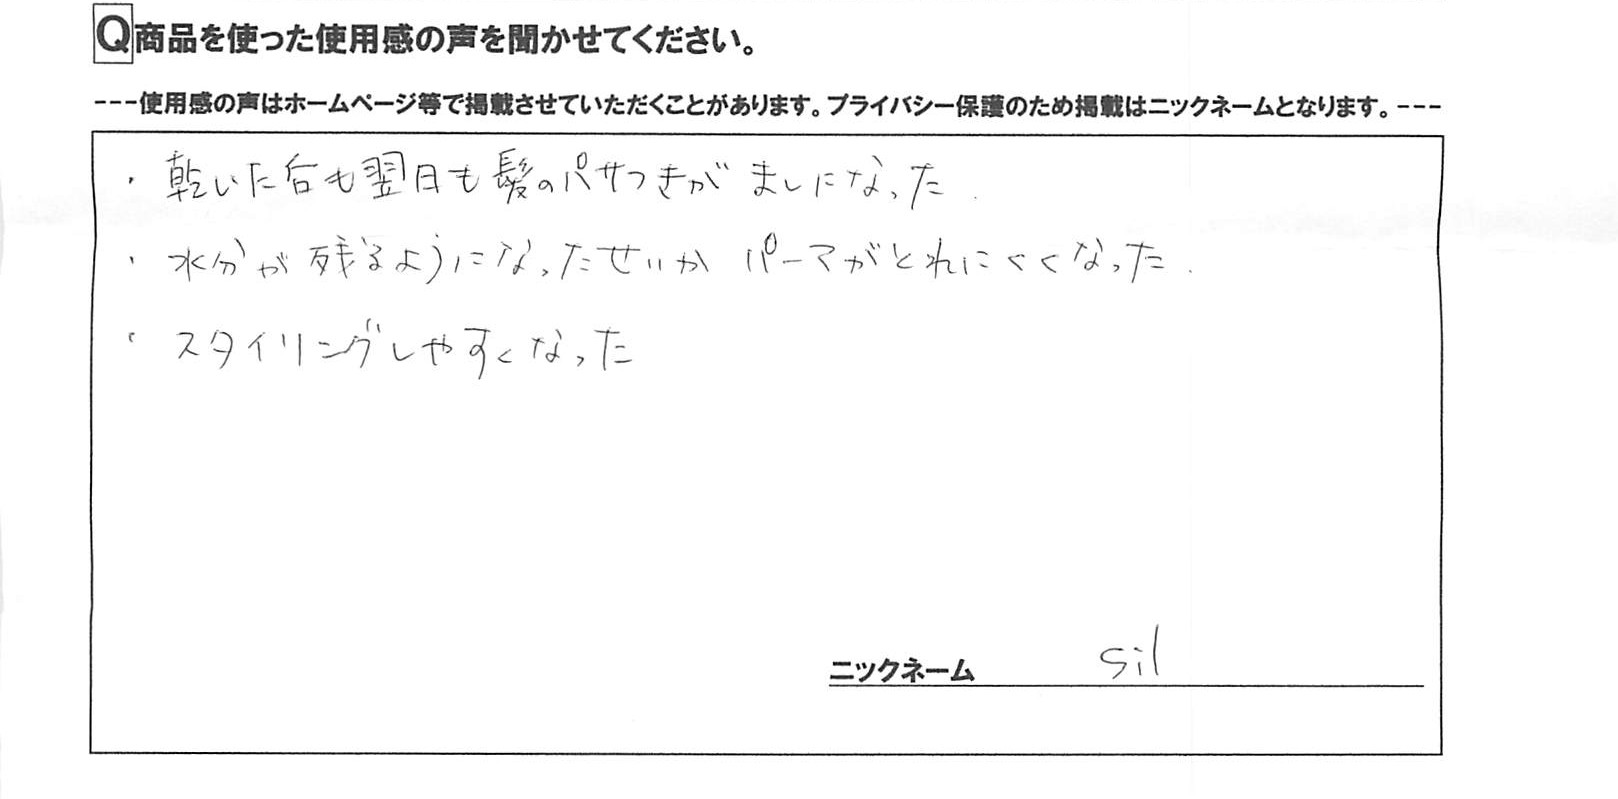 Q商品を使った使用感の声を聞かせてください。
---使用感の声はホームページ等で掲載させていただくことがあります。プライバシー保護のため掲載はニックネームとなります。---
・乾いた后も翌日も髪のパサつきがましになった.
・水分が残るようになったせいか パーマがとれにくくなった.
・スタイリングしやすくなった
ニックネーム sil